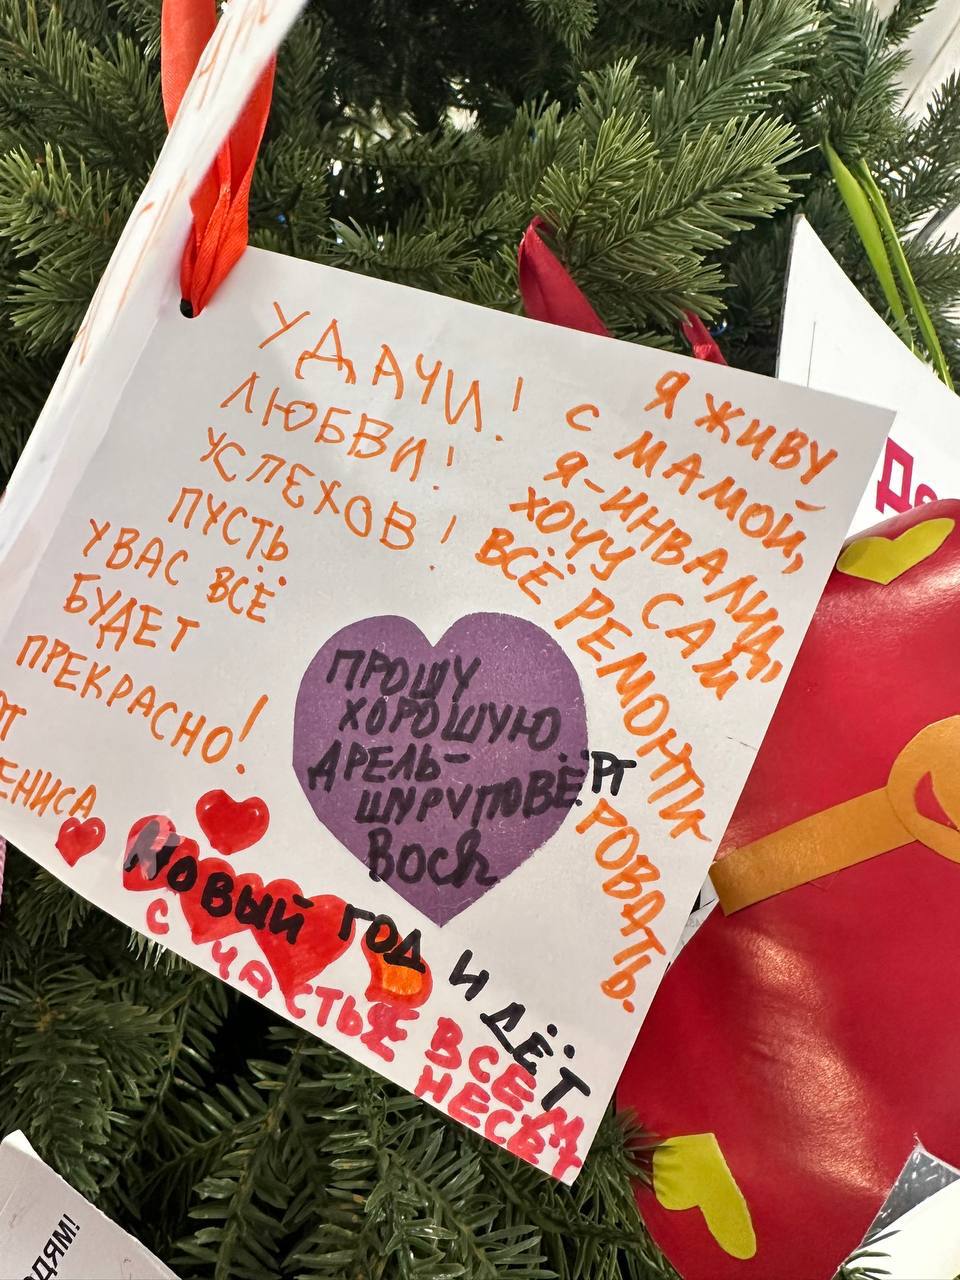 УДАЧИ!
ЛЮБВИ!
УСПЕХОВ!
ПУСТЬ
УВАС ВСЁ
БУДЕТ
ПРЕКРАСНО!
ЕНИСА
Я ЖИВУ
С МАМОЙ,
Я-ИНВАЛИД,
ХОЧУ САМ
ВСЁ РЕМОНТИ
РОВАТЬ.
ПРОШУ
ХОРОШУЮ
ДРЕЛЬ-
ШУРУПОВЁРТ
Bosh
НОВЫЙ ГОД ИДЁТ
СЧАСТЬЕ ВСЕМ
НЕСЁТ
ДЯМ!